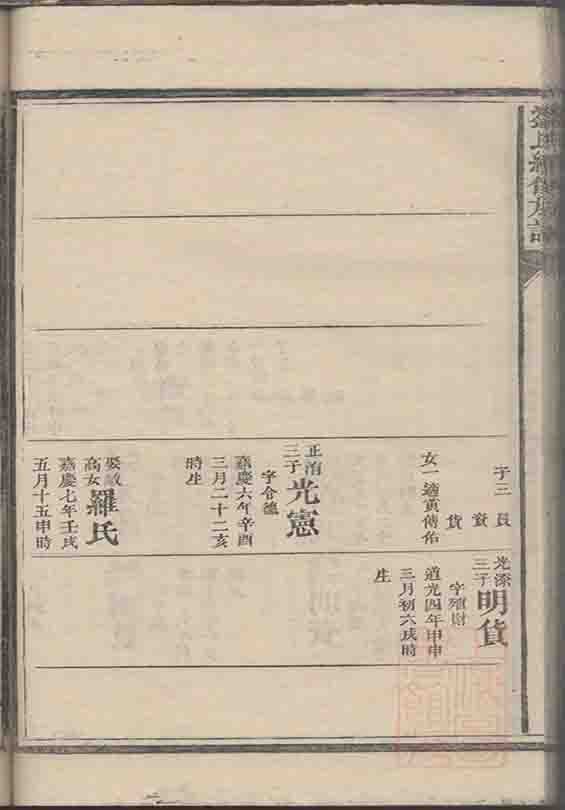 子三 員
資
貨
女一適黃傳佑
正洧三子光憲
字令德
嘉慶六年辛酉
三月二十二亥
時生
娶敏高女羅氏
嘉慶七年壬戌
五月十五申時
三子明貨
字殖財
道光四年甲申
三月初六戌時
生